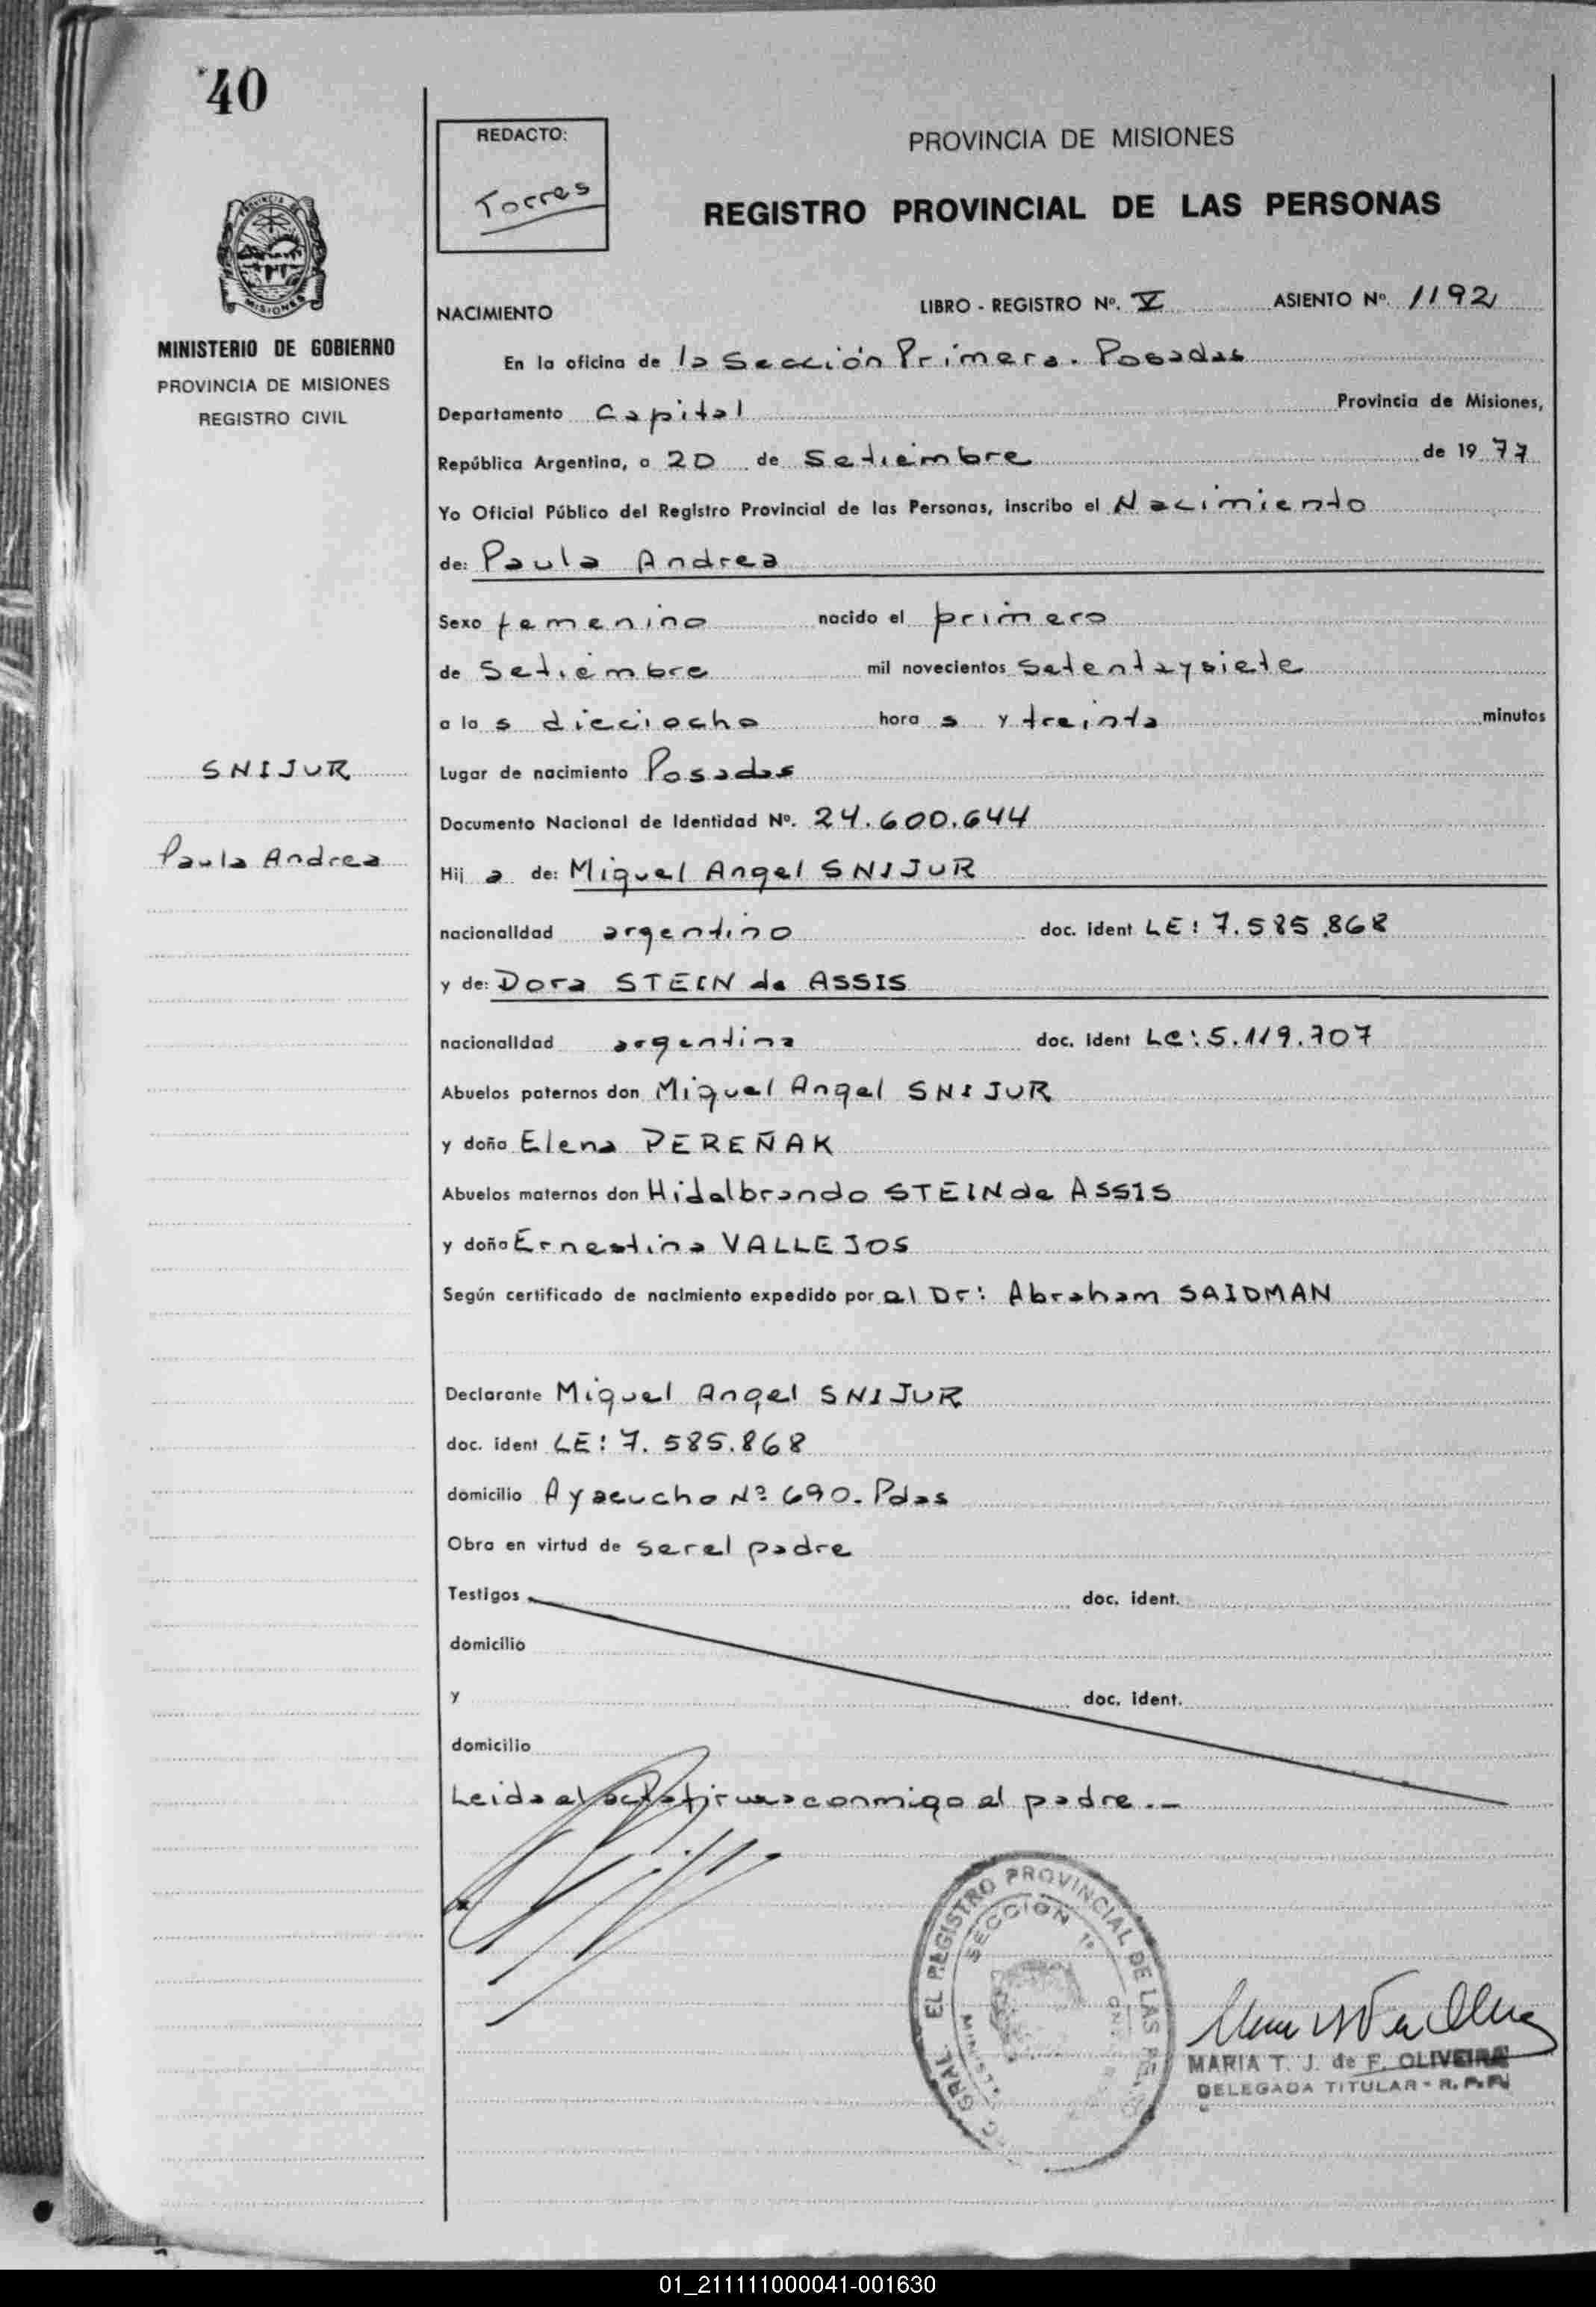 40
REDACTO:
Torres
PROVINCIA DE MISIONES
REGISTRO PROVINCIAL DE LAS PERSONAS
MISIONES
MINISTERIO DE GOBIERNO
PROVINCIA DE MISIONES
REGISTRO CIVIL
NACIMIENTO LIBRO - REGISTRO Nº. V ASIENTO Nº. 1192
En la oficina de la Sección Primera. Posadas
Departamento Capital Provincia de Misiones,
República Argentina, a 20 de Setiembre de 1977
Yo Oficial Público del Registro Provincial de las Personas, inscribo el Nacimiento
de: Paula Andrea
Sexo femenino nacido el primero
de Setiembre mil novecientos setentaysiete
a la s dieciocho hora s y treinta minutos
SNIJUR
Lugar de nacimiento Posadas
Documento Nacional de Identidad Nº. 24.600.644
Paula Andrea
Hij a de: Miguel Angel SNIJUR
nacionalidad argentino doc. ident LE: 7.585.868
y de: Dora STEIN de ASSIS
nacionalidad argentina doc. ident LC: 5.119.707
Abuelos paternos don Miguel Angel SNIJUR
y doña Elena PEREÑAK
Abuelos maternos don Hidalbrando STEIN de ASSIS
y doña Ernestina VALLEJOS
Según certificado de nacimiento expedido por el Dr: Abraham SAIDMAN
Declarante Miguel Angel SNIJUR
doc. ident LE: 7.585.868
domicilio Ayacucho Nº 690. Pdas
Obra en virtud de ser el padre
Testigos doc. ident.
domicilio
y doc. ident.
domicilio
Leida el acta firma conmigo el padre.-
GRAL. EL REGISTRO PROVINCIAL DE LAS
SECCION 1ª
MARIA T. J. de F. OLIVEIRA
DELEGADA TITULAR - R. P. P.
01_211111000041-001630